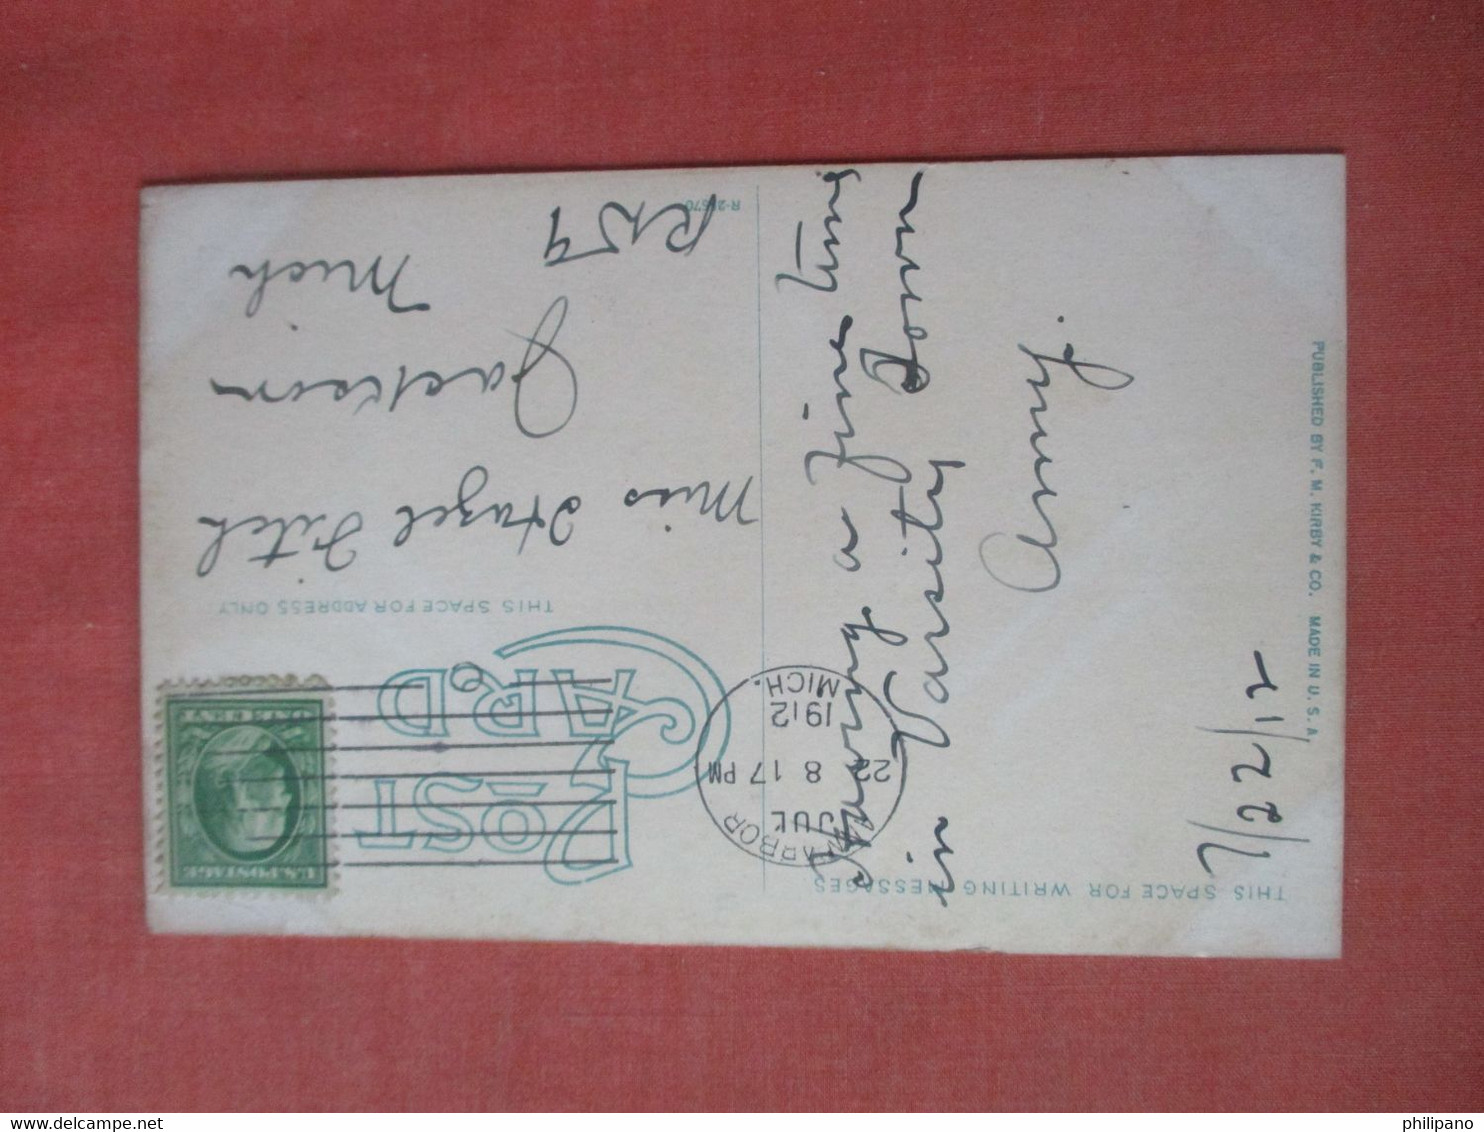 THIS SPACE FOR WRITING MESSAGES
7/22/12
Having a fine time
in Varsity Town
Amy.
PUBLISHED BY F. M. KIRBY & CO. MADE IN U. S. A.
POST CARD
THIS SPACE FOR ADDRESS ONLY
ANN ARBOR
JUL
22
8 17 PM
1912
MICH.
U.S. POSTAGE
ONE CENT
Miss Hazel Fitch
Jackson
Mich
R-21670
philipano
delcampe.net